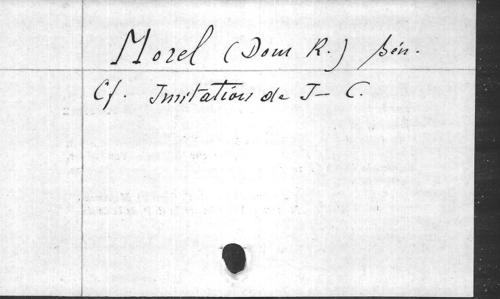 Morel (Dom R.) bén.
Cf. Imitation de J-C.